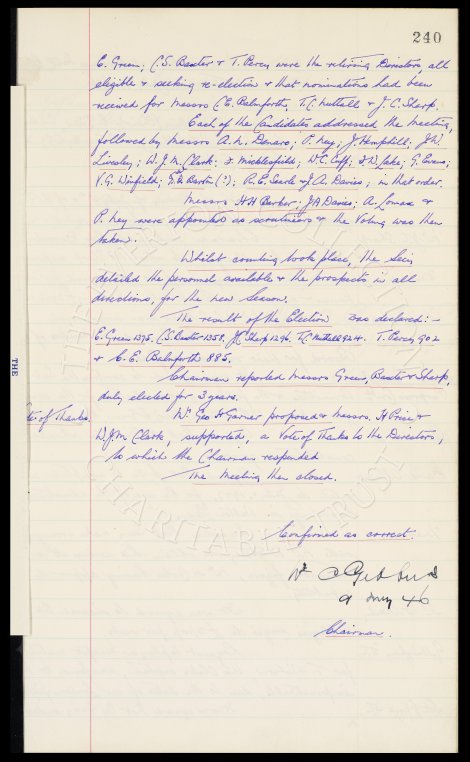 240
E. Green; C.S. Baxter & T. Percy were the retiring Directors, all
eligible & seeking re-election & that nominations had been
received for Messrs C.E. Balmforth, T.C. Nuttall & J.C. Sharp.
Each of the Candidates addressed the Meeting,
followed by Messrs A.N. Denaro; P. Ley; J. Hemphill; J.W.
Livesley; W.J.M. Clark; F. Micklesfield; W.C. Cuff; F.W. Lake; G. Evans;
V.G. Winfield; Bartin (?); R.E. Searle & J.A. Davies; in that order.
Messrs H.H. Barker; J.A. Davies; A. Lomax &
P. Ley were appointed as scrutineers & the Voting was then
taken.
Whilst counting took place, the Secy
detailed the personnel available & the prospects in all
directions, for the new Season.
The result of the Election was declared:-
E. Green 1395. C.S. Baxter 1358. J.C. Sharp 1296. T.C. Nuttall 924. T. Percy 902
& C.E. Balmforth 885.
Chairman reported Messrs Green, Baxter & Sharp,
duly elected for 3 years.
THE
te of Thanks.
Mr. Geo H Garner proposed & Messrs. H Price &
W.J.M Clark, supported, a Vote of Thanks to the Directors,
to which the Chairman responded
The Meeting then closed.
CHARITABLE TRUST
Confirmed as correct.
46
Chairman.